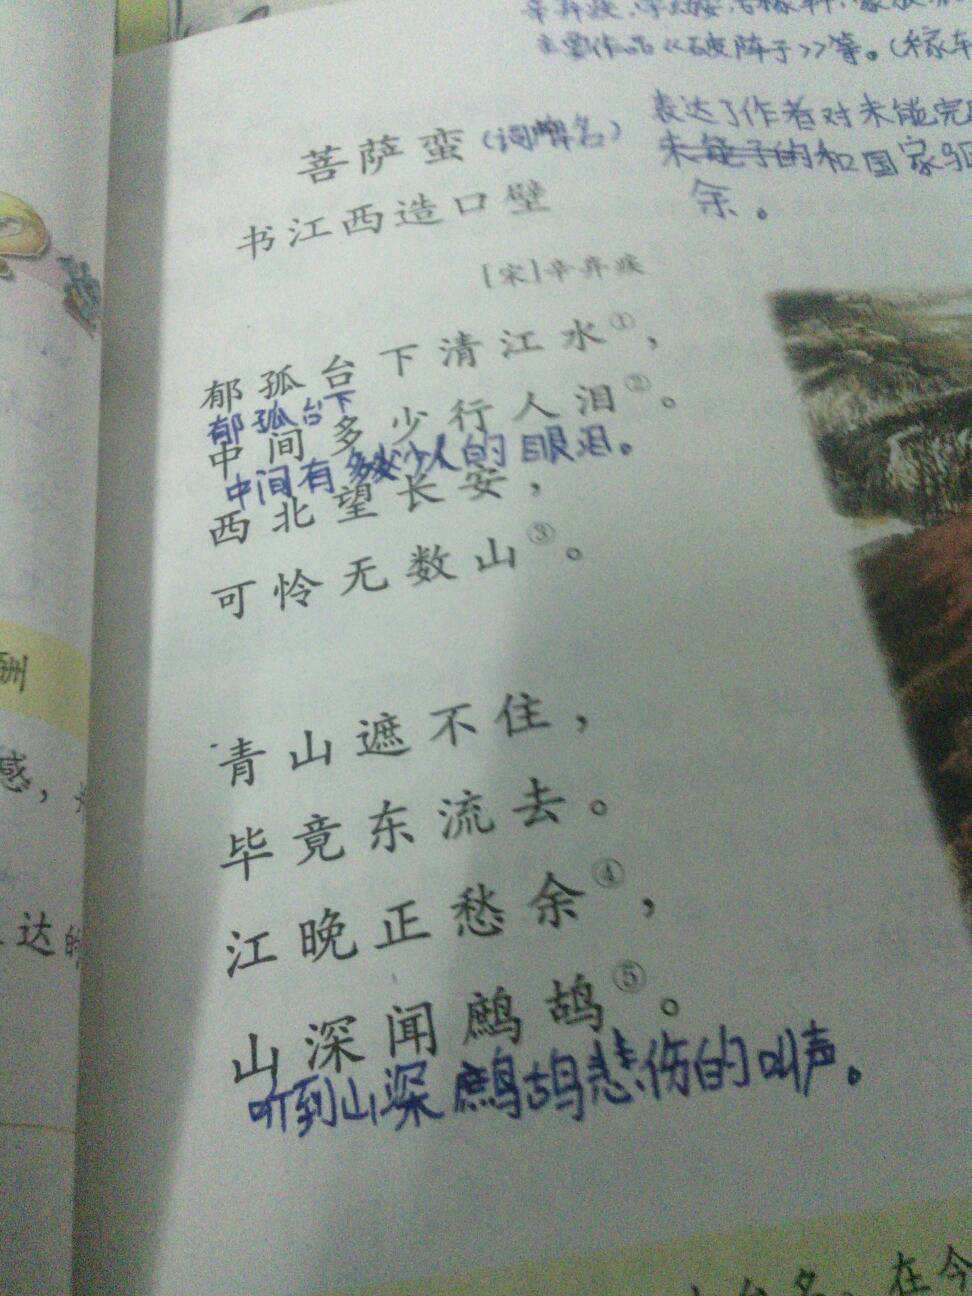 主要作品《破阵子》等。(稼轩
表达了作者对未能完
未能子的和国家
余。
菩萨蛮(词牌名)
书江西造口壁
[宋]辛弃疾
郁孤台下清江水①，
郁孤台下
中间多少行人泪②。
中间有多少人的眼泪。
西北望长安，
可怜无数山③。
青山遮不住，
毕竟东流去。
江晚正愁余④，
山深闻鹧鸪⑤。
听到山深鹧鸪悲伤的叫声。
酬
感，
达的
在今